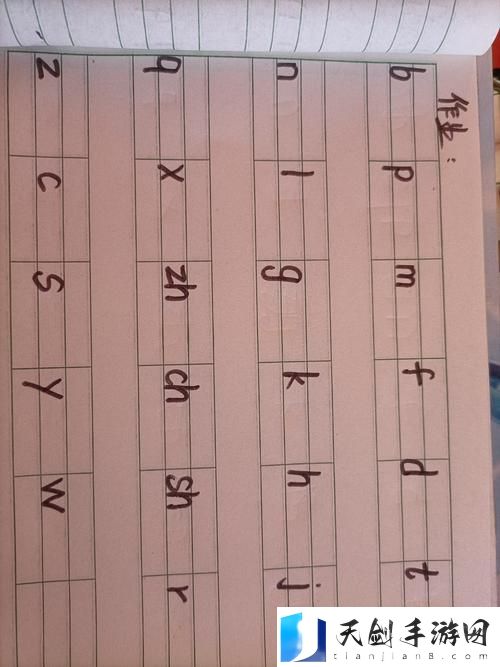 作业：
b p m f d t
n l g k h j
q x zh ch sh r
z c s y w
天剑手游网
tianjian8.com